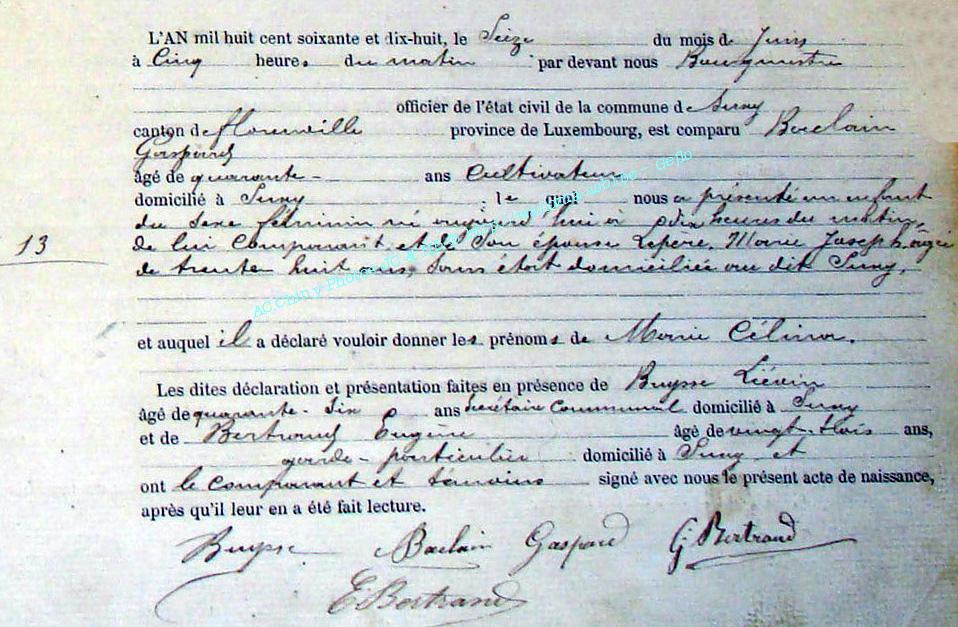 L'AN mil huit cent soixante et dix-huit, le Seize du mois de Juin
à Cinq heures du matin par devant nous Bourgmestre
officier de l'état civil de la commune de Suxy
canton de florenville province de Luxembourg, est comparu Baclain
Gaspard
âgé de quarante - ans Cultivateur
domicilié à Suxy ; le quel nous a présenté un enfant
du sexe féminin né aujourd'hui à dix heures du matin,
13
de lui Comparant, et de Son épouse Lepère, Marie Joseph, âgée
de trente huit ans, Sans état domiciliée au dit Suxy,
et auquel il a déclaré vouloir donner les prénoms de Marie Célina.
Les dites déclaration et présentation faites en présence de Buysse Liévin
âgé de quarante-Six ans Secrétaire Communal domicilié à Suxy
et de Bertrand Eugène âgé de vingt-trois ans,
garde-particulier domicilié à Suxy et
ont le comparant et témoins signé avec nous le présent acte de naissance,
après qu'il leur en a été fait lecture.
Buysse Baclain Gaspard G. Bertrand
E Bertrand
AC.Chiny-Photo